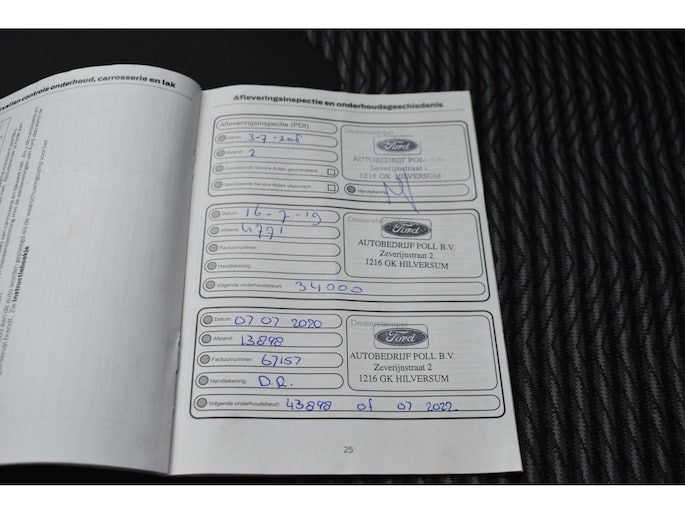 controle onderhoud, carrosserie en lak
Instructieboekje
Afleveringsinspectie en onderhoudsgeschiedenis
Afleveringsinspectie (PDI)
Datum: 3-7-
Afstand: 2
Openstaande Service-Acties gecontroleerd:
Openstaande Service-Acties uitgevoerd:
Dealerstempel
Ford
AUTOBEDRIJF POLL
Zeverijnstraat
1216 GK HILVERSUM
Handtekening:
Datum: 16-7-19
Afstand: 4771
Factuurnummer:
Handtekening:
Volgende onderhoudsbeurt: 34000
Dealerstempel
Ford
AUTOBEDRIJF POLL B.V.
Zeverijnstraat 2
1216 GK HILVERSUM
Datum: 07 07 2020
Afstand: 13898
Factuurnummer: 67157
Handtekening: D.R.
Dealerstempel
Ford
AUTOBEDRIJF POLL B.V.
Zeverijnstraat 2
1216 GK HILVERSUM
Volgende onderhoudsbeurt: 43898 of 07 2022
25